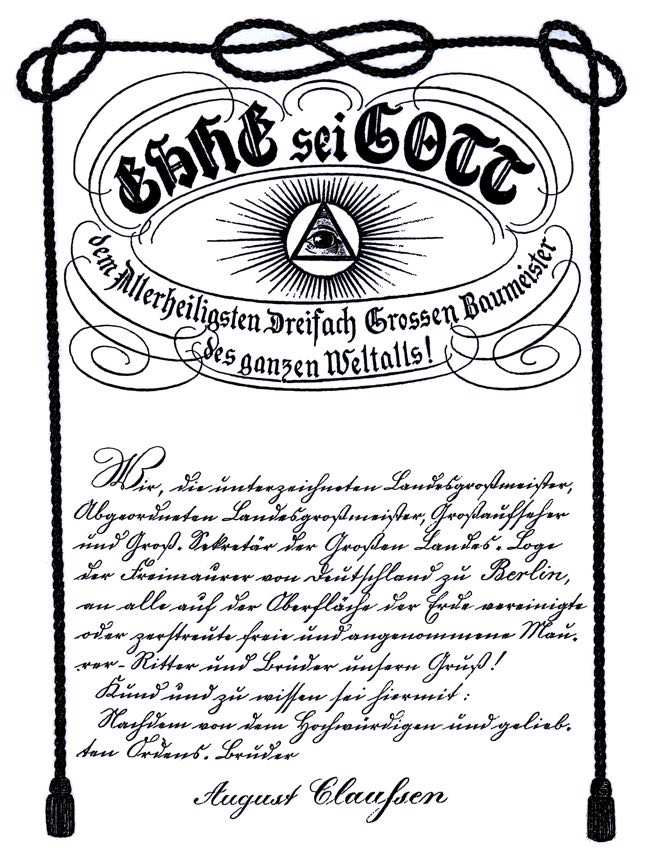 EHRE sei GOTT
dem Allerheiligsten Dreifach Grossen Baumeister
des ganzen Weltalls!
Wir, die unterzeichneten Landesgroßmeister,
Abgeordneten Landesgroßmeister, Großaufseher
und Groß-Sekretär der Großen Landes-Loge
der Freimaurer von Deutschland zu Berlin,
an alle auf der Oberfläche der Erde vereinigte
oder zerstreute freie und angenommene Mau-
rer-Ritter und Brüder unsern Gruß!
Kund und zu wissen sei hiermit:
Nachdem von dem Hochwürdigen und gelieb-
ten Ordens-Bruder
August Claußen